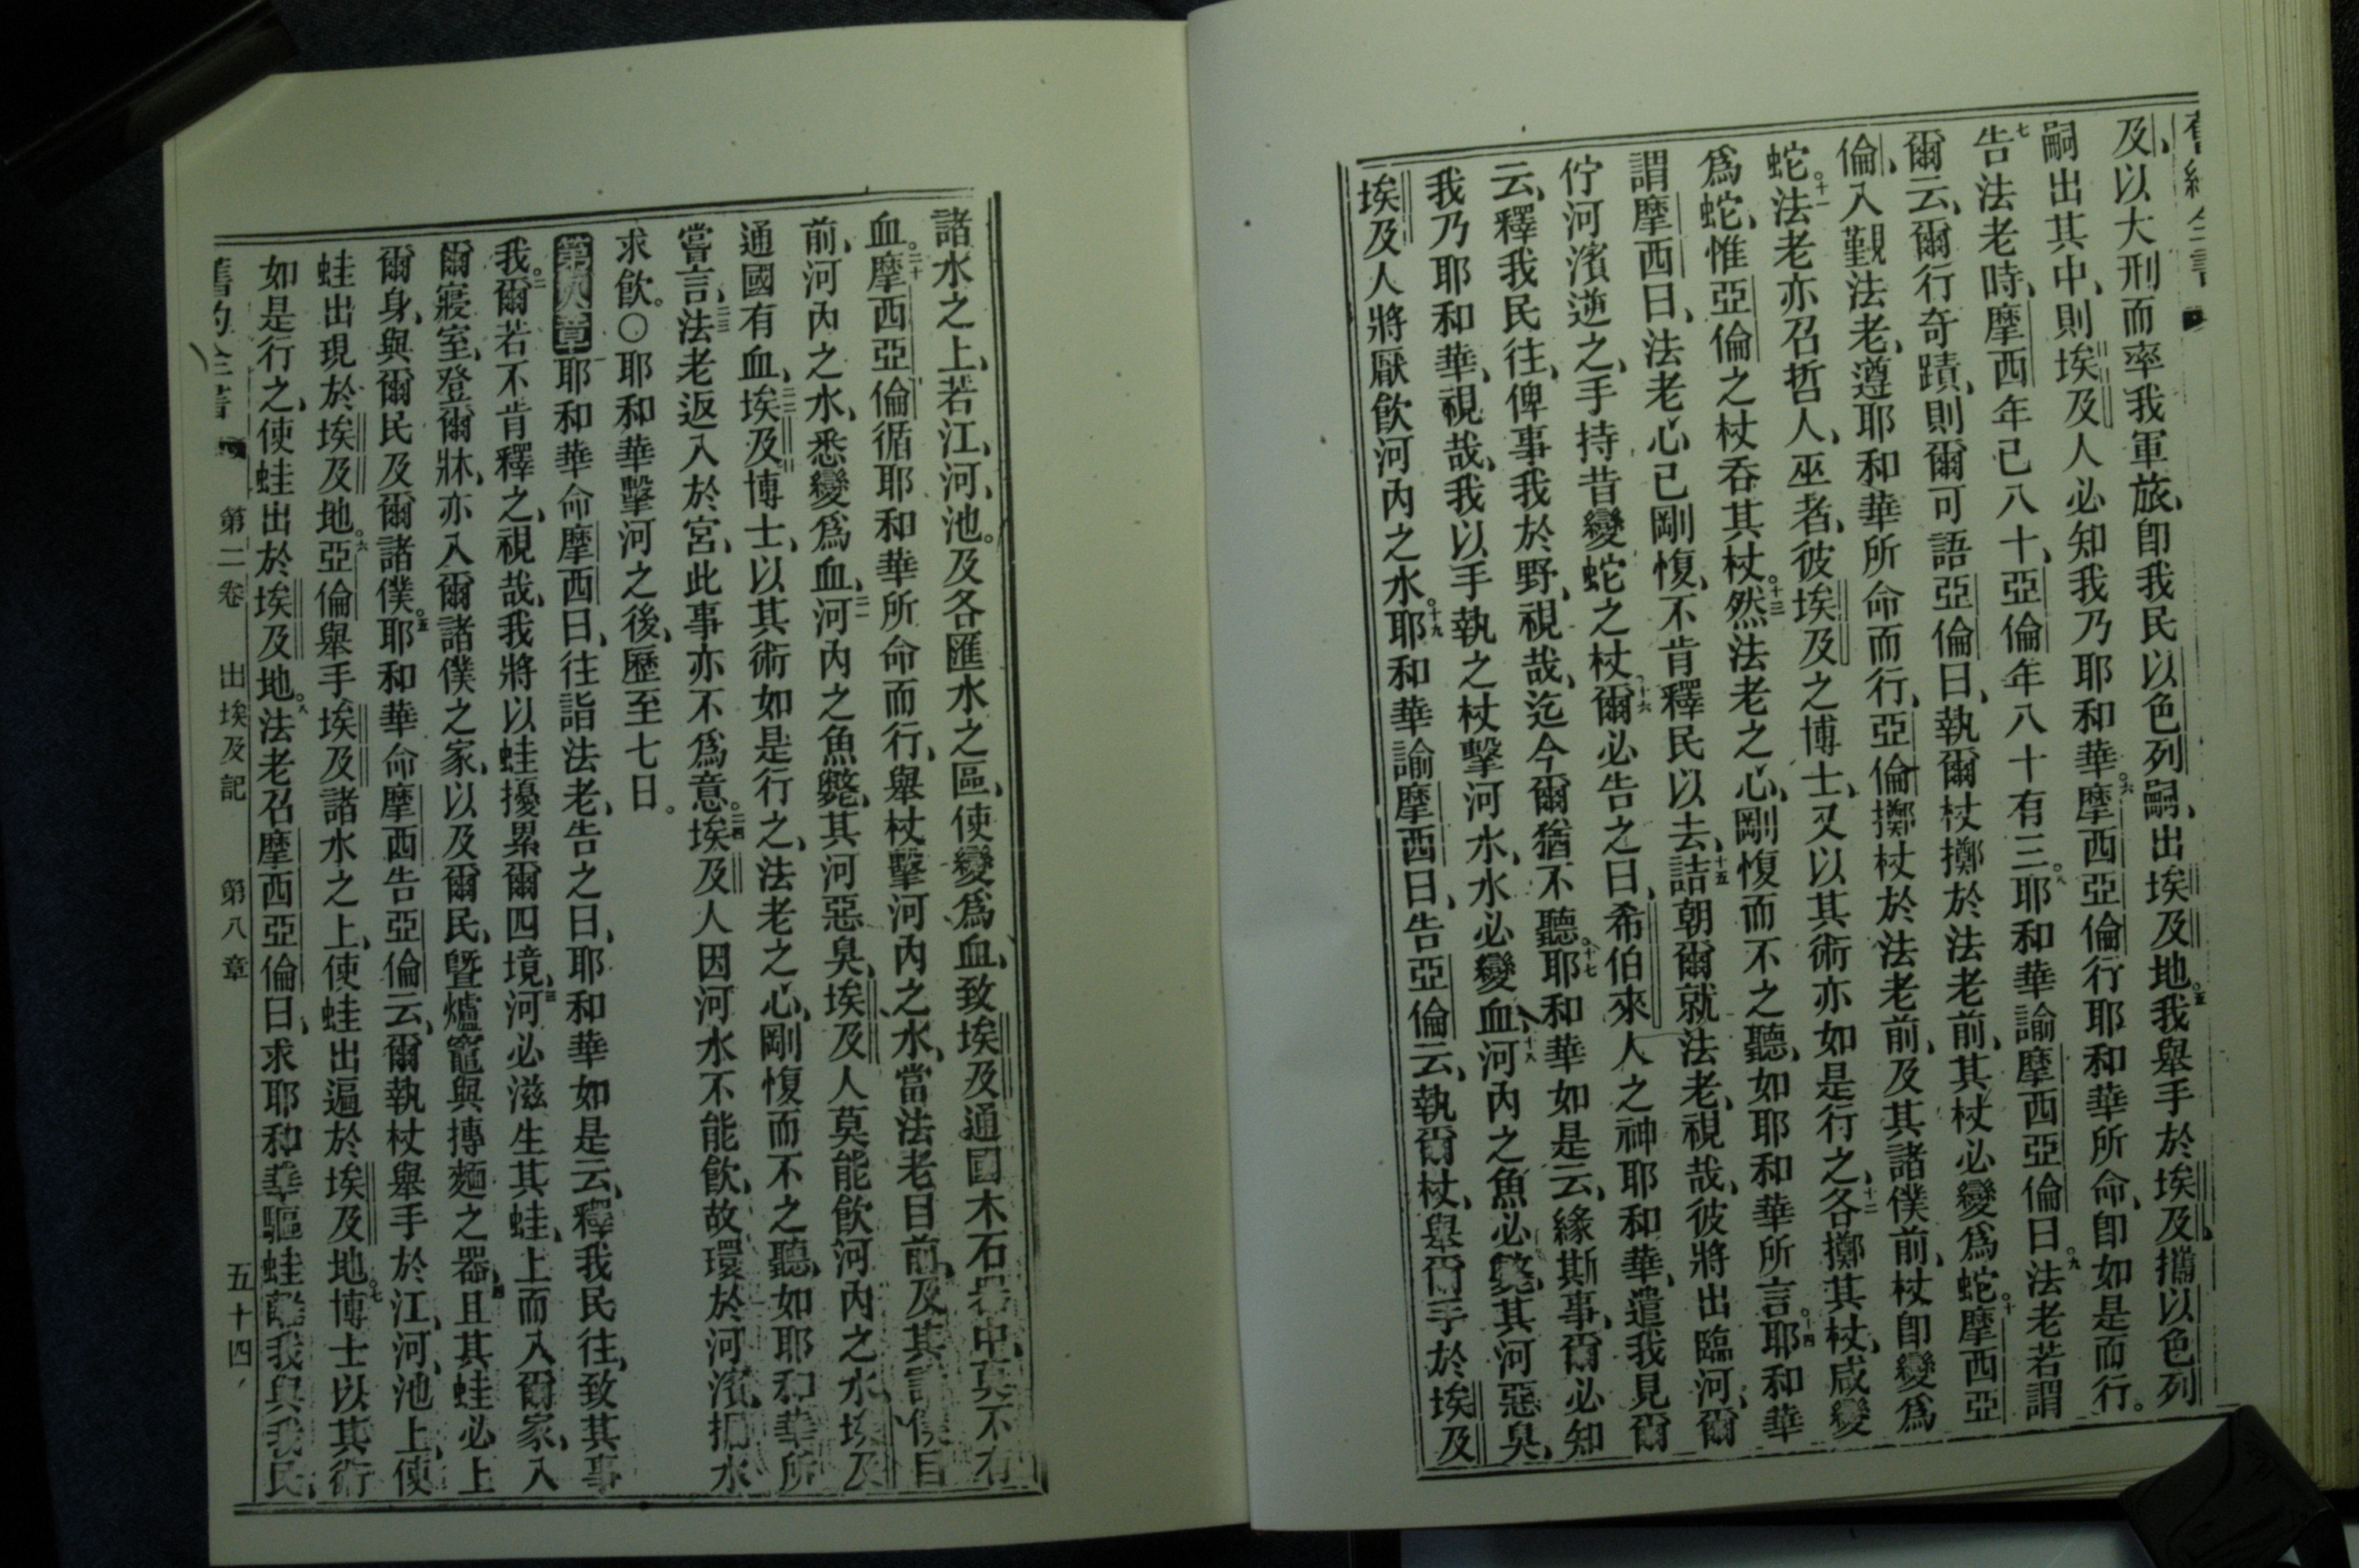 及、以大刑而率我軍旅、即我民以色列嗣、出埃及地。五我舉手於埃及、攜以色列
嗣出其中、則埃及人必知我乃耶和華。六摩西亞倫行耶和華所命、即如是而行。
七告法老時、摩西年已八十、亞倫年八十有三。八耶和華諭摩西亞倫曰。九法老若謂
爾云、爾行奇蹟、則爾可語亞倫曰、執爾杖擲於法老前、其杖必變爲蛇。十摩西亞
倫、入覲法老、遵耶和華所命而行、亞倫擲杖於法老前、及其諸僕前、杖即變爲
蛇。十一法老亦召哲人、巫者、彼埃及之博士、又以其術亦如是行之、十二各擲其杖、咸變
爲蛇、惟亞倫之杖吞其杖。十三然法老之心、剛愎而不之聽、如耶和華所言。十四耶和華
謂摩西曰、法老心已剛愎、不肯釋民以去、十五詰朝爾就法老、視哉、彼將出臨河、爾
佇河濱逆之、手持昔變蛇之杖、十六爾必告之曰、希伯來人之神耶和華、遣我見爾
云、釋我民往、俾事我於野、視哉、迄今爾猶不聽。十七耶和華如是云、緣斯事、爾必知
我乃耶和華、視哉、我以手執之杖擊河水、水必變血、十八河內之魚必斃、其河惡臭、
埃及人將厭飲河內之水。十九耶和華諭摩西曰、告亞倫云、執爾杖、舉爾手於埃及
諸水之上、若江、河、池。及各匯水之區、使變爲血、致埃及通國木石器中、莫不有
血。二十摩西亞倫循耶和華所命而行、舉杖擊河內之水、當法老目前、及其諸僕目
前、河內之水、悉變爲血、二一河內之魚斃、其河惡臭、埃及人莫能飲河內之水、埃及
通國有血、二二埃及博士、以其術如是行之、法老之心、剛愎而不之聽、如耶和華所
嘗言、二三法老返入於宮、此事亦不爲意。二四埃及人因河水不能飲、故環於河濱、掘水
求飲。〇耶和華擊河之後、歷至七日。
第八章耶和華命摩西曰、往詣法老、告之曰、耶和華如是云、釋我民往、致其事
我。二爾若不肯釋之、視哉、我將以蛙擾累爾四境、三河必滋生其蛙、上而入爾家、入
爾寢室、登爾牀、亦入爾諸僕之家、以及爾民、曁爐竈與摶麵之器、四且其蛙必上
爾身、與爾民及爾諸僕。五耶和華命摩西告亞倫云、爾執杖舉手於江、河、池上、使
蛙出現於埃及地。六亞倫舉手埃及諸水之上、使蛙出遍於埃及地。七博士以其術
如是行之、使蛙出於埃及地。八法老召摩西亞倫曰、求耶和華驅蛙離我與我民、
舊約全書 第二卷 出埃及記 第八章 五十四